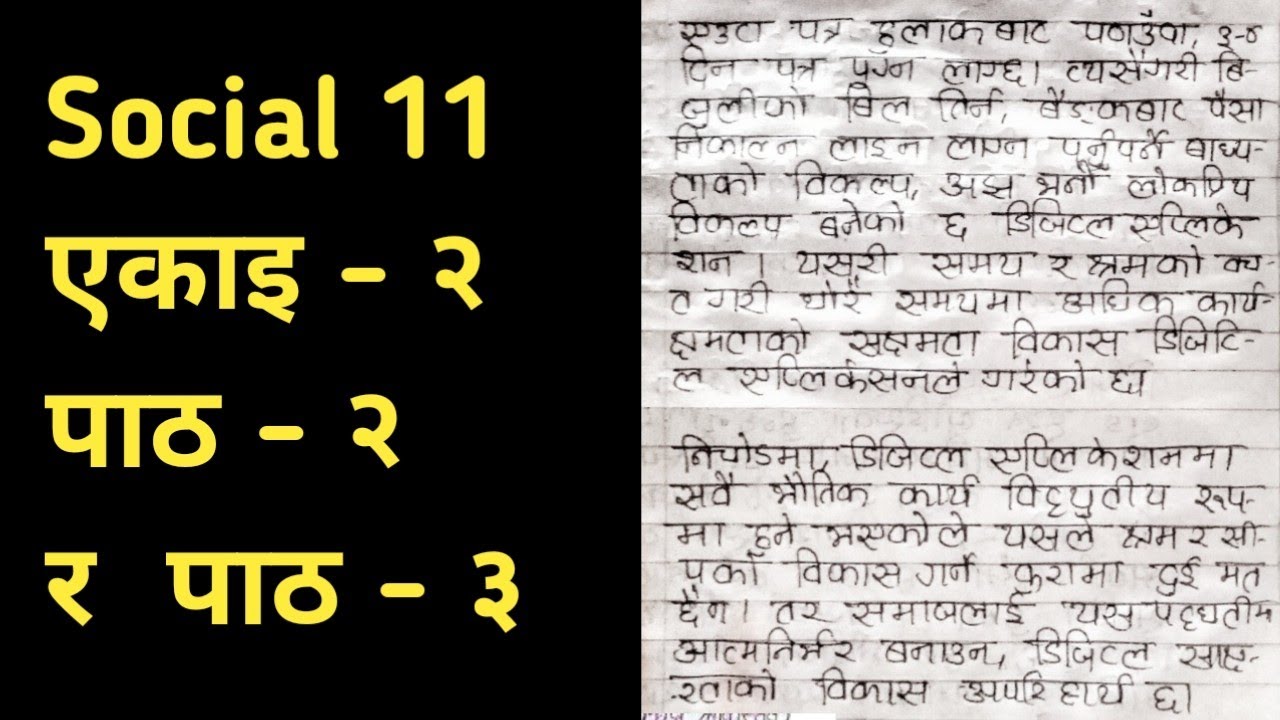 Social 11
एकाइ - २
पाठ - २
र पाठ - ३
एउटा पत्र हुलाकबाट पठाउँदा, ३-४
दिन पत्र पुग्न लाग्छ। त्यसैगरी बि-
जुलीको बिल तिर्न, बैङ्कबाट पैसा
निकाल्न लाइन लाग्न पुर्नुपर्ने बाध्य-
ताको विकल्प, अझ भनौं लोकप्रिय
विकल्प बनेको छ डिजिटल एप्लिके
शन। यसरी समय र श्रमको बच-
त गरी थोरै समयमा अधिक कार्य-
क्षमताको सक्षमता विकास डिजिटि-
ल एप्लिकेसनले गरेको छ।
निचोडमा, डिजिटल एप्लिकेशनमा
सबै भौतिक कार्य विद्युतीय रूप-
मा हुने भएकोले यसले श्रम र सी-
पको विकास गर्ने कुरामा दुई मत
छैन। तर समाजलाई यस पद्धतीमा
आत्मनिर्भर बनाउन, डिजिटल साक्ष-
रताको विकास अपरिहार्य छ।